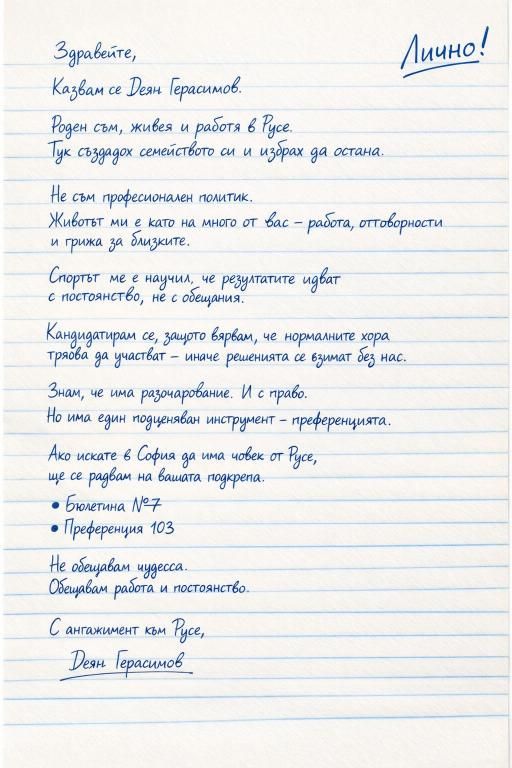 Лично!
Здравейте,
Казвам се Деян Герасимов.
Роден съм, живея и работя в Русе.
Тук създадох семейството си и избрах да остана.
Не съм професионален политик.
Животът ми е като на много от вас – работа, отговорности
и грижа за близките.
Спортът ме е научил, че резултатите идват
с постоянство, не с обещания.
Кандидатирам се, защото вярвам, че нормалните хора
трябва да участват – иначе решенията се взимат без нас.
Знам, че има разочарование. И с право.
Но има един подценяван инструмент – преференцията.
Ако искате в София да има човек от Русе,
ще се радвам на вашата подкрепа.
• Бюлетина №7
• Преференция 103
Не обещавам чудеса.
Обещавам работа и постоянство.
С ангажимент към Русе,
Деян Герасимов